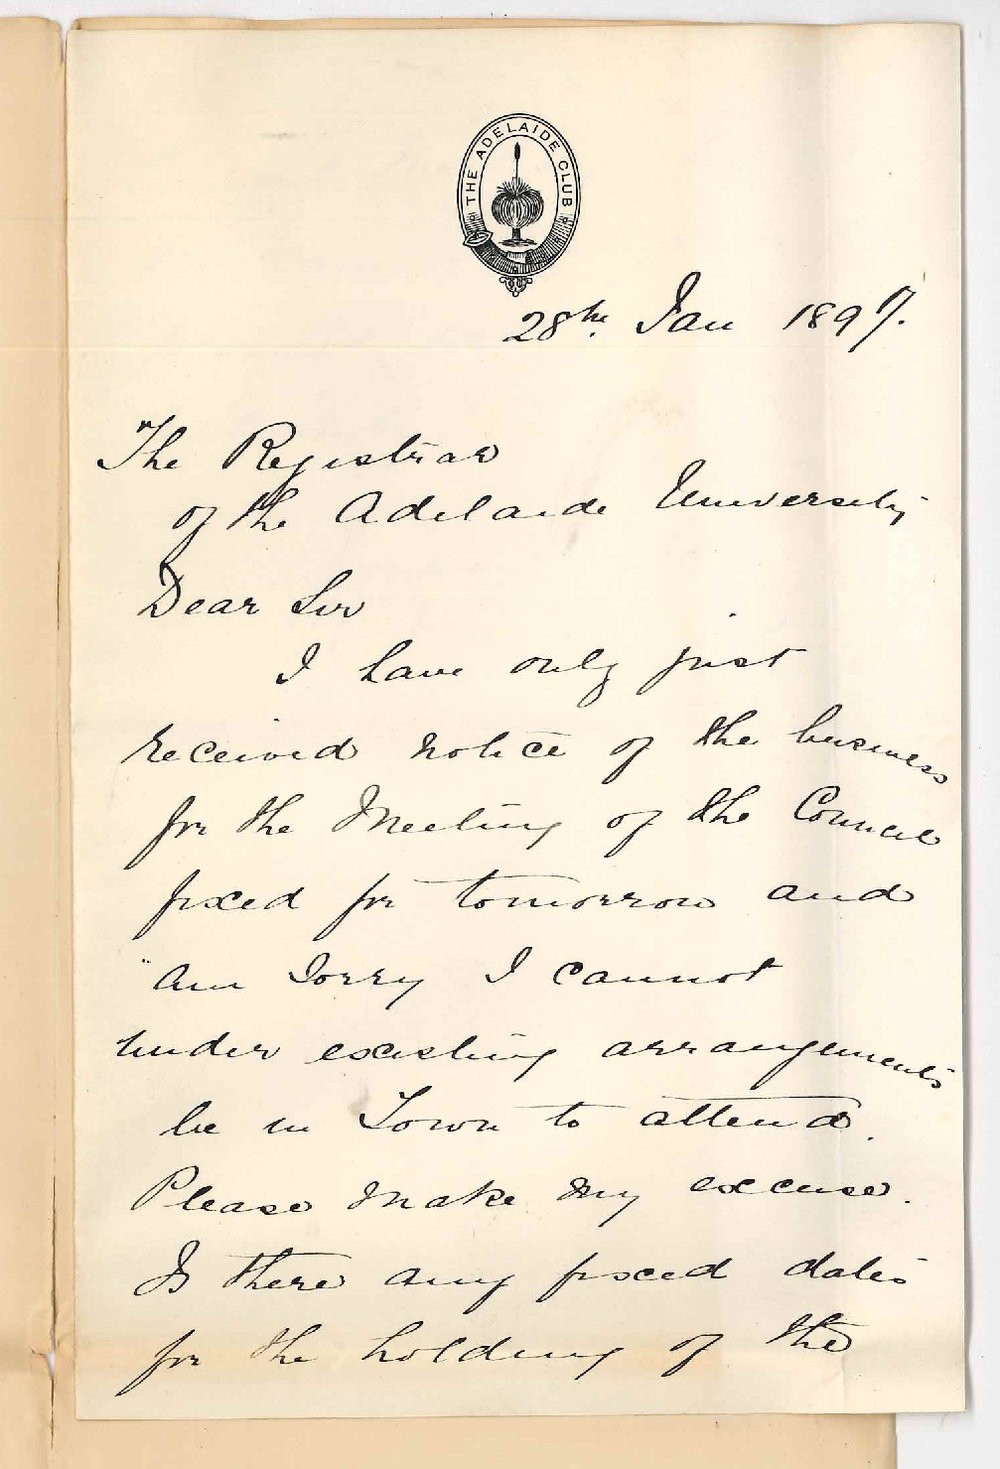 THE ADELAIDE CLUB
28th. Jan 1897.
The Registrar
of the Adelaide University
Dear Sir
I have only just
received notice of the business
for the Meeting of the Council
fixed for tomorrow and
am sorry I cannot
under existing arrangements
be in Town to attend.
Please make my excuse.
Is there any fixed dates
for the holding of the